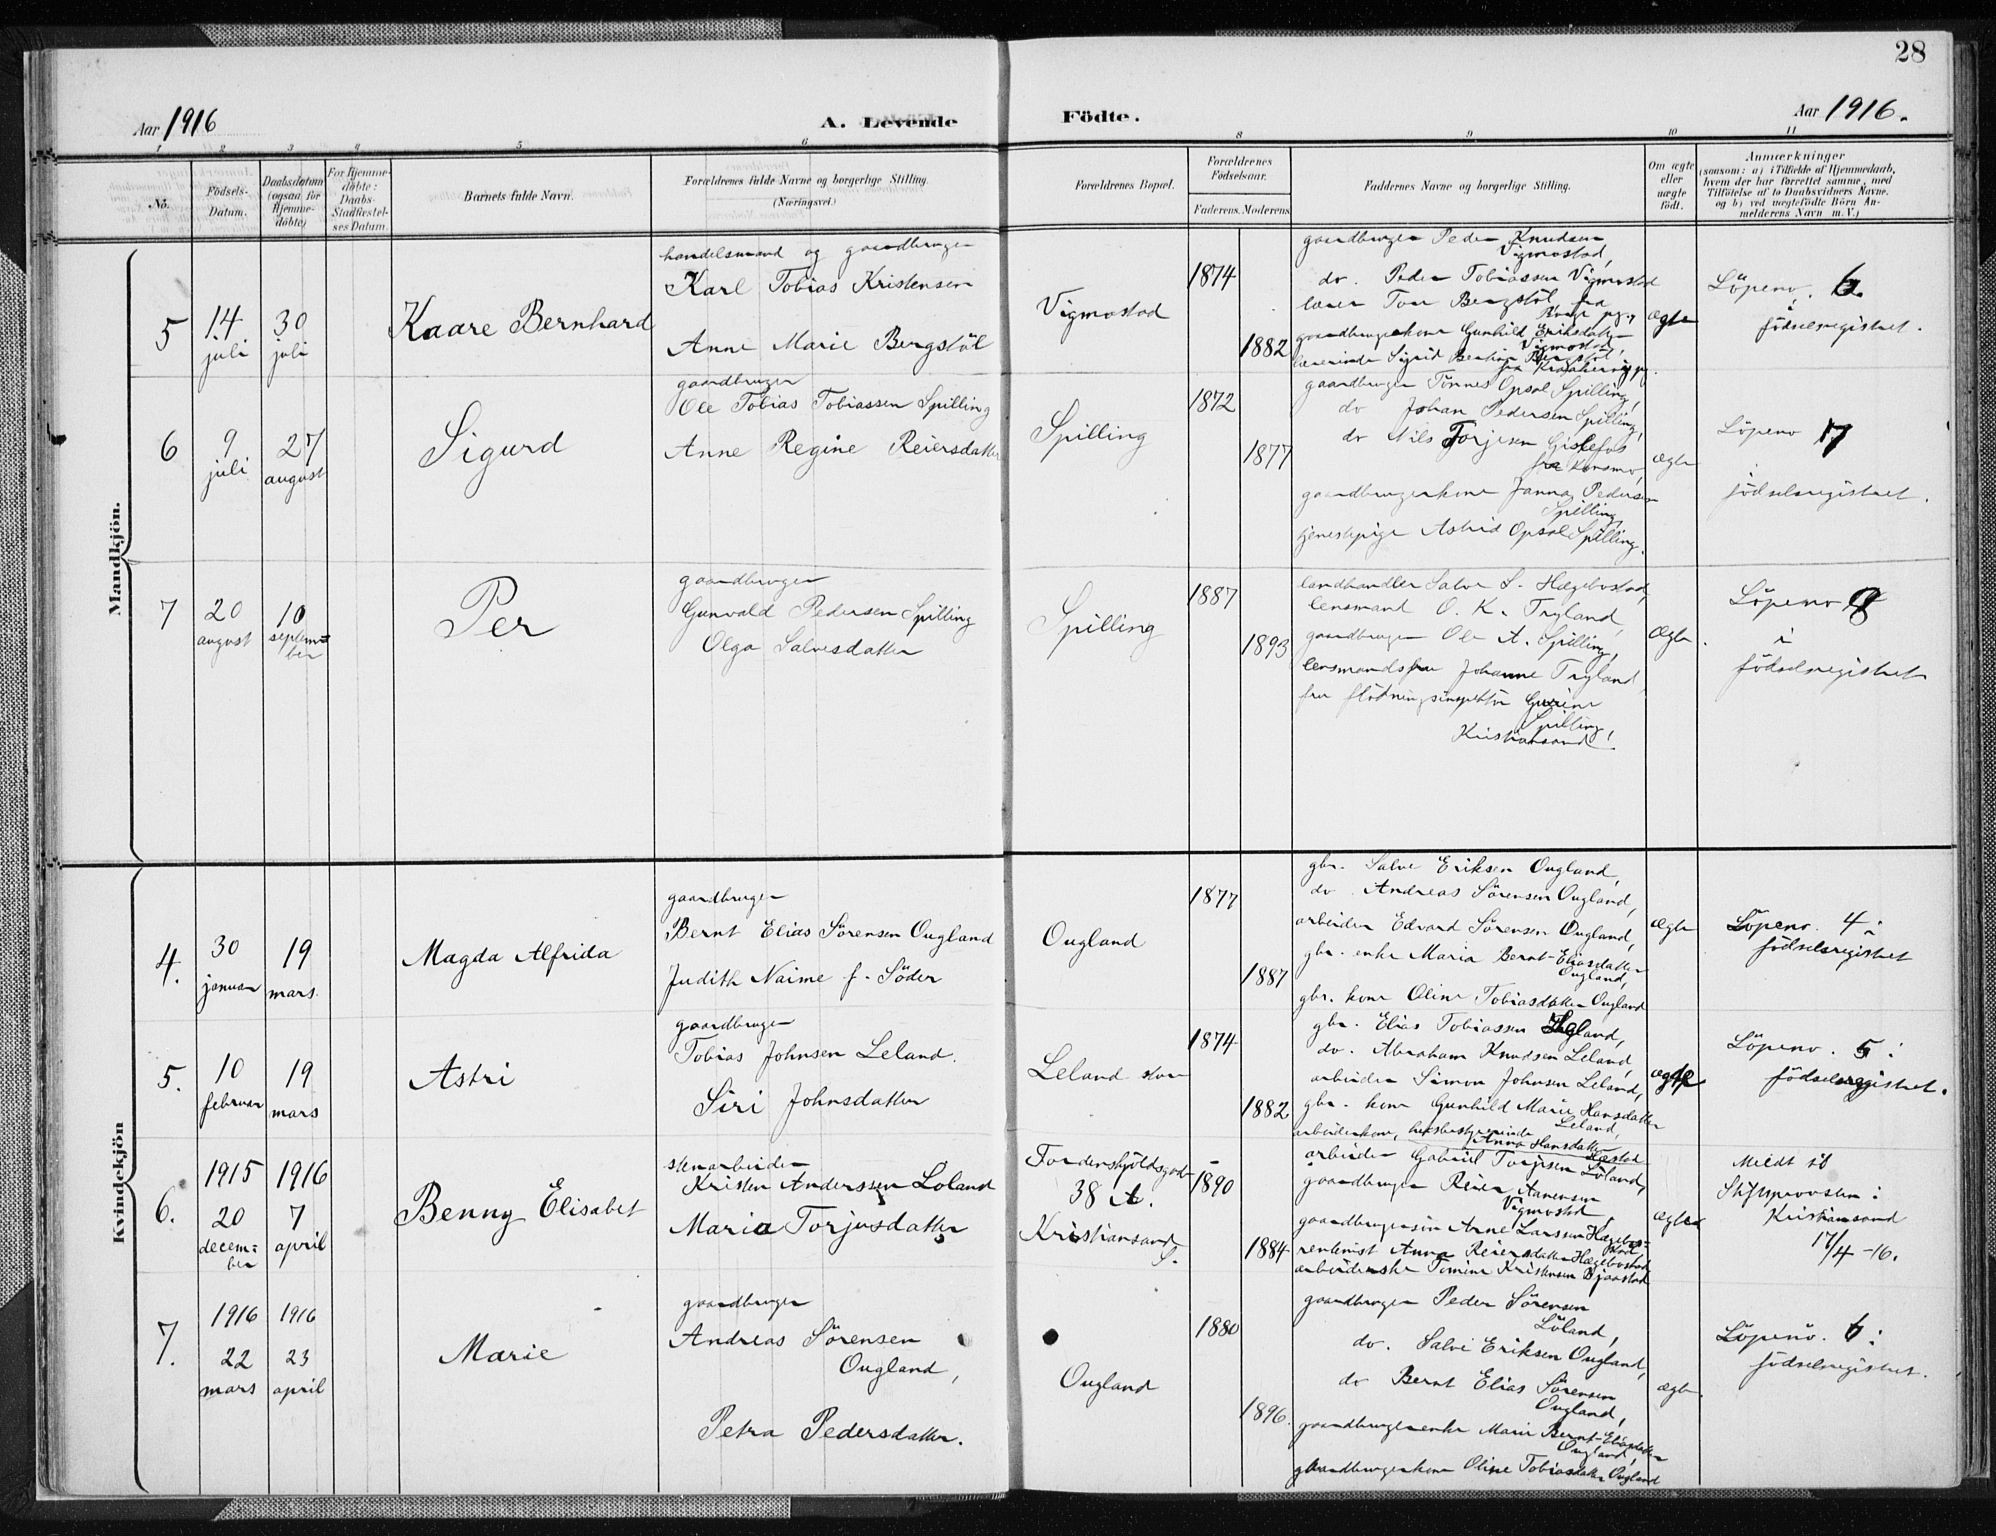 28
Aar 1916
A. Levende Födte.
Aar 1916.
1 2 3 4 5 6 8 9 10 11
No.
Födsels-
Datum.
Daabsdatum
(ogsaa for
Hjemme-
döbte)
For Hjemme-
döbte:
Daabs-
Stadfæstel-
ses Datum.
Barnets fulde Navn.
Forældrenes fulde Navne og borgerlige Stilling.
(Næringsvei.)
Forældrenes Bopæl.
Forældrenes
Födselsaar.
Faderens. Moderens
Faddernes Navne og borgerlige Stilling.
Om ægte
eller
uægte
födt.
Anmærkninger
(saasom: a) i Tilfælde af Hjemmedaab,
hvem der har forrettet samme, med
Tilföielse af to Daabsvidners Navne,
og b) ved uægtefödte Börn An-
melderens Navn m. V.)
Mandkjön.
5
14
juli
30
juli
Kaare Bernhard
handelsmand og gaardbruger
Karl Tobias Kristensen
Anne Marie Bergstöl
Vigmostad
1874
1882
gaardbruger Peder Knudsen
Vigmostad,
do. Peder Tobiassen Vigmostad
lærer Tore Bergstöl, fra
gaardbrugerkone Gunhild Eriksdatter
Vigmostad,
lærerinde Sigrid Bergstöl
ægte
Löpeno. 6.
i
födselsregistret.
6
9
juli
27
august
Sigurd
gaardbruger
Ole Tobias Tobiassen Spilling
Anne Regine Reiersdatter
Spilling
1872
1877
gaardbruger Tönnes Opsal Spilling,
do Johan Pedersen Spilling,
do Nils Torjesen Gislefos
fra Konsmo,
gaardbrugerkone Janna Pedersen
Spilling
tjenestepige Astrid Opsal Spilling.
ægte
Löpeno 7
i
födselsregistret.
7
20
august
10
septem=
ber
Per
gaardbruger
Gunvald Pedersen Spilling
Olga Salvesdatter
Spilling
1887
1893
landhandler Salve S. Hægebostad,
lensmand O. K. Tryland,
gaardbruger Ole A. Spilling,
lensmandsfru Johanne Tryland,
fru flötningsinspektör Gurine
Spilling,
Kristiansand.
Ægte
Löpeno 8
i
födselsregistret
Kvindekjön
4.
30
januar
19
mars.
Magda Alfrida
gaardbruger
Bernt Elias Sörensen Ougland
Judith Naime f. Söder
Ougland
1877
1887
gbr. Salve Eriksen Ougland,
do. Andreas Sörensen Ougland,
arbeider Edvard Sörensen Ougland,
gbr. enke Maria Bernt-Eliasdatter
Ougland,
gbr. kone Oline Tobiasdatter Ougland
ægte
Löpeno. 4 i
födselsregistret
5.
10
februar
19
mars
Astri
gaardbruger
Tobias Johnsen Leland.
Siri Johnsdatter
Leland stor
1874
1882
gbr. Elias Tobiassen
do. Abraham Knudsen Leland,
arbeider Simon Johnsen Leland,
gbr. kone Gunhild Marie Hansdatter
Leland,
arbeiderkone, husbestyrerinde
Anna Hansdatter
ægte
Löpeno. 5 i
födselsregistret.
6.
1915
20
decem=
ber
1916
7
april
Benny Elisabet
stenarbeider
Kristen Anderssen Loland
Maria Torjusdatter
Tordenskjöldsgade
38 A.
Kristiansand
S.
1890
1884
arbeider Gabriel Torjesen Löland,
gaardbruger Reier Aanensen
Vigmostad,
gaardbrugersön Arne Larssen Hægebo-
stad,
rentenist Anna Reiersdatter Hægebostad
arbeiderske Tomine Kristensen Bjaastad
ægte
Meldt til
Stiftsprovsten i
Kristiansand
17/4 -16.
7.
1916
22
mars
1916
23
april
Marie
gaardbruger
Andreas Sörensen
Ougland,
Petra Pedersdatter.
Ougland
1880
1896.
gaardbruger Peder Sörensen
Löland,
do. Salve Eriksen Ougland,
do Bernt Elias Sörensen
Ougland,
gaardbrugerenke Marie Bernt-Eliasdatter
Ougland,
gaardbrugerkone Oline Tobiasdatter Ougland
ægte
Löpenö. 6 i
födselsregistret.